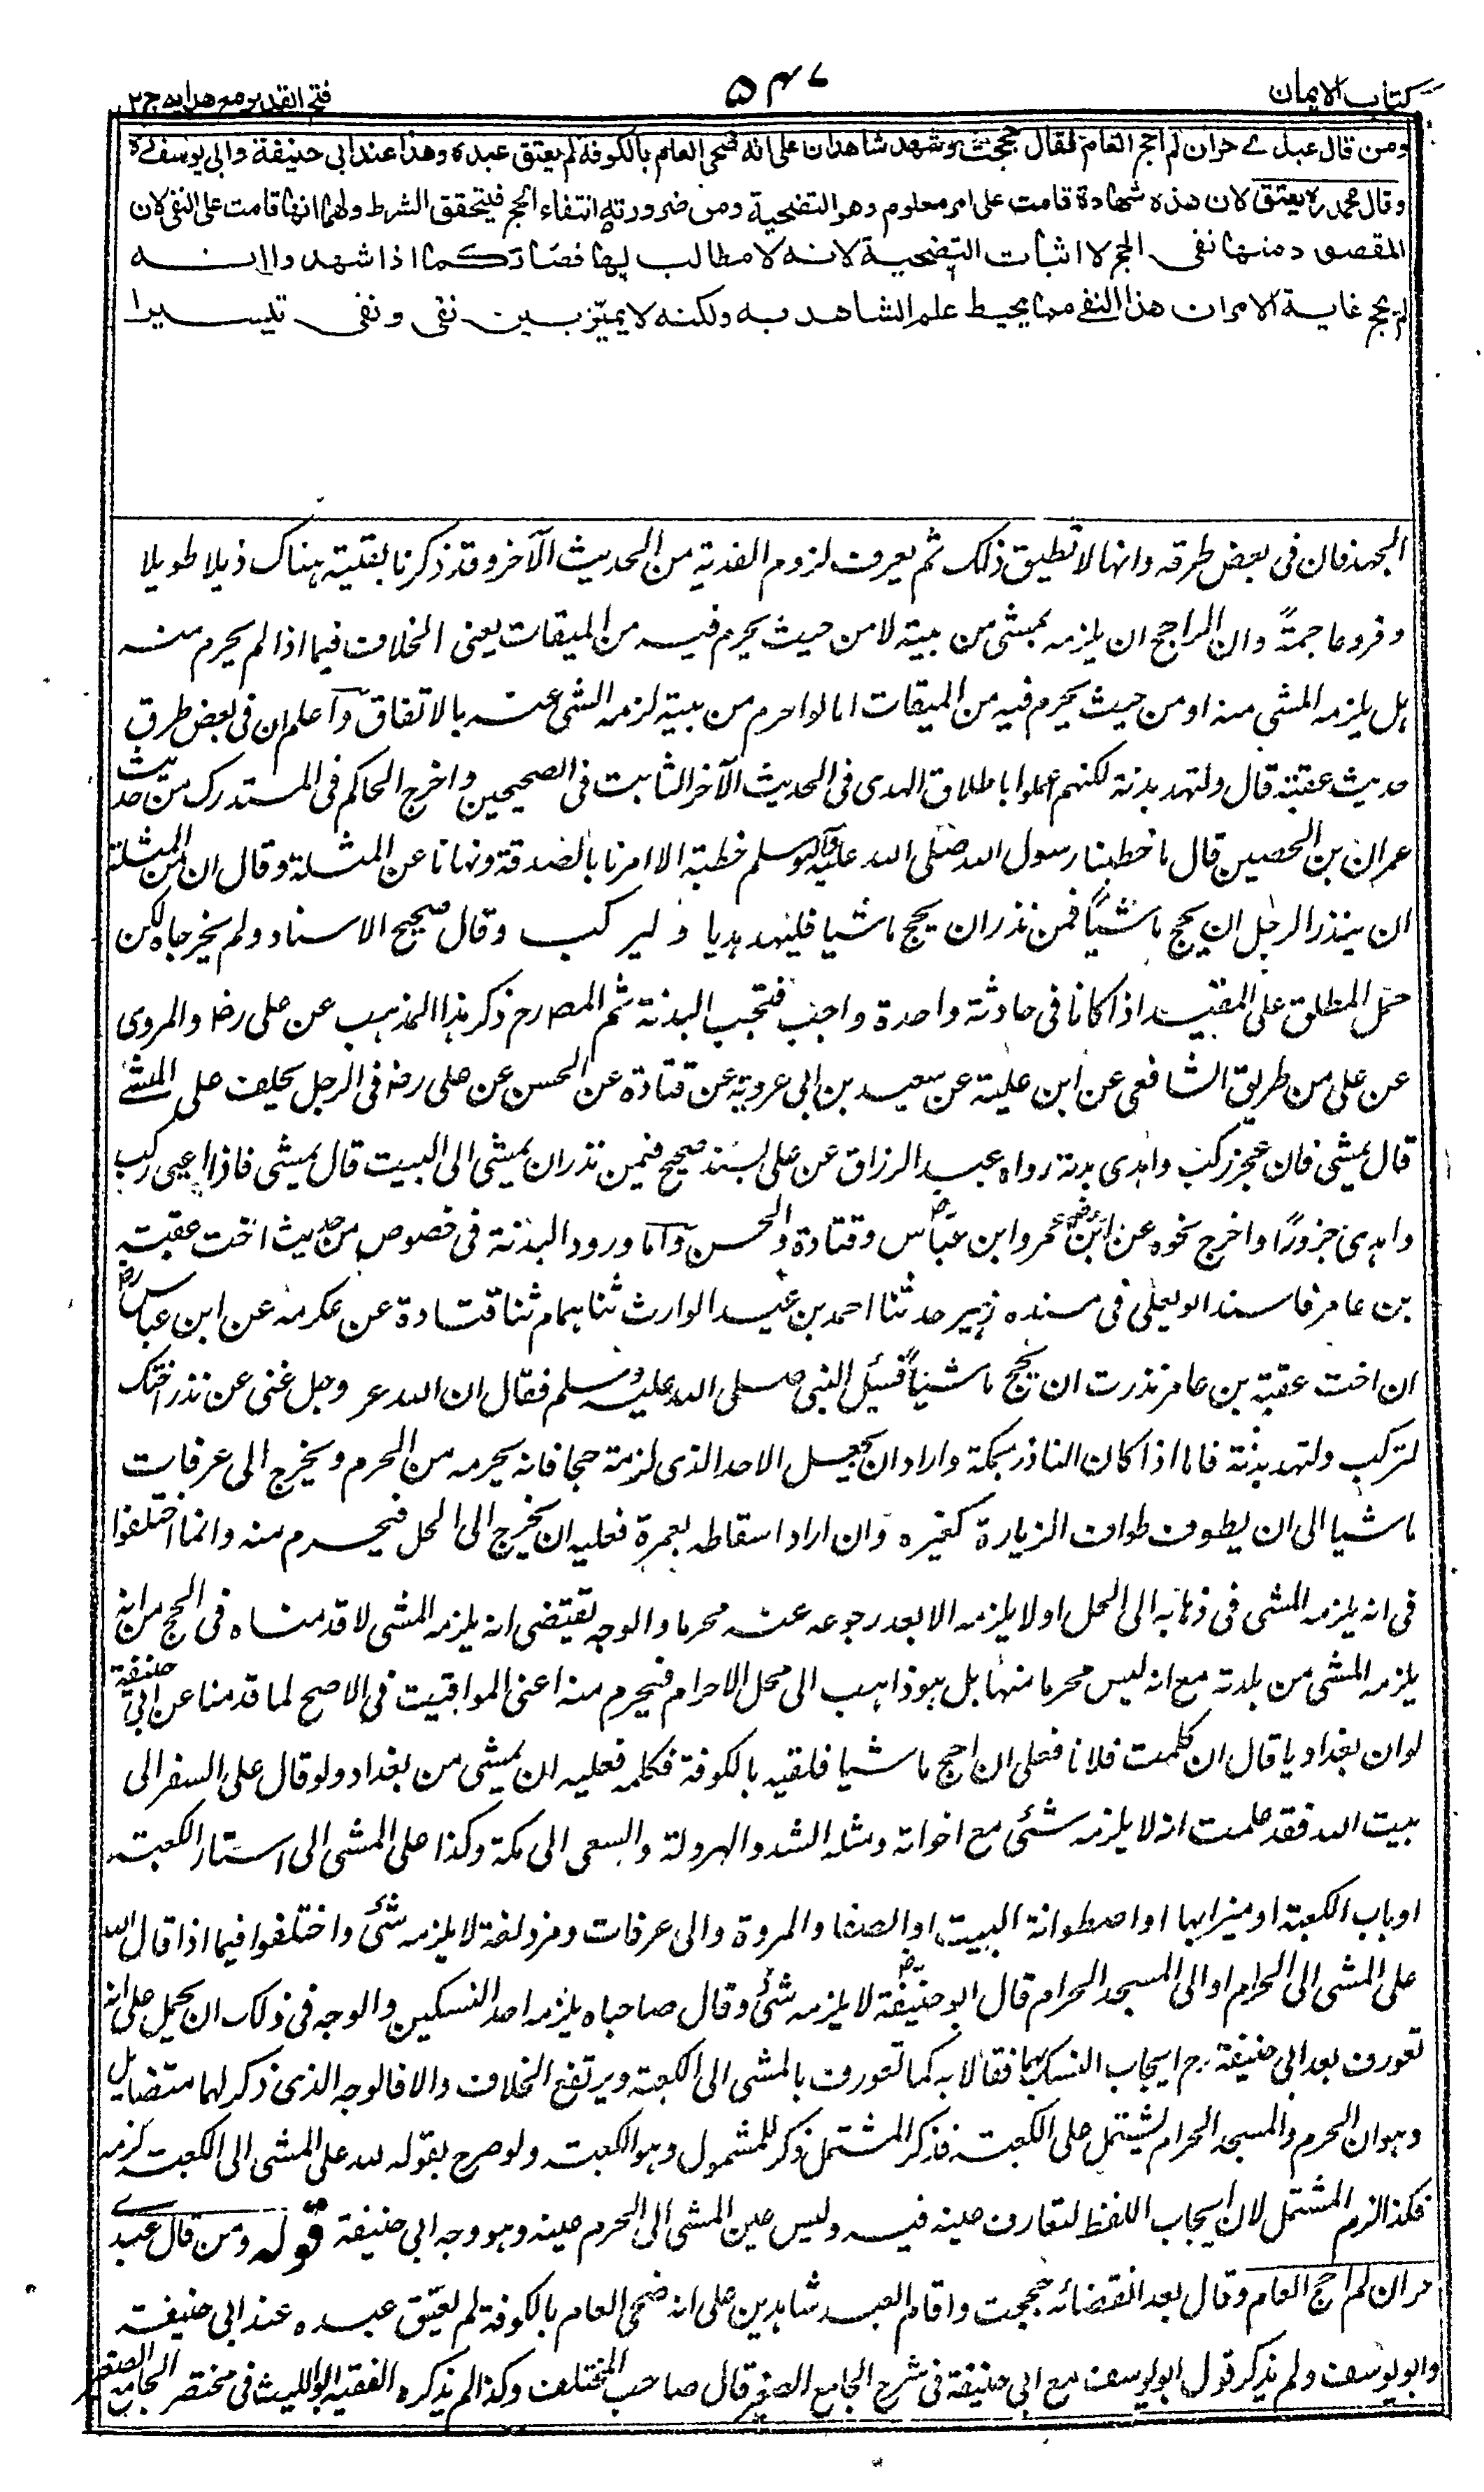 كتاب الايمان
۵۴۷
فتح القدير مع هدايه ج۲
ومن قال عبدي حران لم احج العام فقال حججت وشهد شاهدان على انه ضحى العام بالكوفة لم يعتق عبده وهذا عند ابي حنيفة وابي يوسف ره
وقال محمد ره يعتق لان هذه شهادة قامت على امر معلوم وهو التضحية ومن ضرورته انتفاء الحج فيتحقق الشرط ولهما انها قامت على النفي لان
المقصود منها نفي الحج لا اثبات التضحية لانه لا مطالب لها فصار كما اذا شهدوا انه
لم يحج غاية الامر ان هذا النفي مما يحيط علم الشاهد به ولكنه لا يميز بين نفي ونفي تيسيرا
الجهد فان في بعض طرقه وانها لا تطيق ذلك ثم يعرف لزوم الفدية من الحديث الآخر وقد ذكرنا بقيته هناك ذيلا طويلا
وفروعا جمةً وان الراجح ان يلزمه يمشى من بيته لا من حيث يحرم فيه من الميقات يعنى الخلاف فيما اذا لم يحرم منه
بل يلزمه المشى منه او من حيث يحرم فيه من الميقات اما لو احرم من بيته لزمه المشى عنه بالاتفاق وآعلم ان في بعض طرق
حديث عقبة قال ولتهد بدنة لكنهم عملوا باطلاق الهدى في الحديث الآخر الثابت في الصحيحين واخرج الحاكم في المستدرك من حديث
عمران بن الحصين قال ما خطبنا رسول الله صلى الله عليه وآله وسلم خطبة الا امرنا بالصدقة ونهانا عن المثلة وقال ان من المثلة
ان ينذر الرجل ان يحج ماشياً فمن نذر ان يحج ماشيا فليهد هديا وليركب وقال صحيح الاسناد ولم يخرجاه لكن
حمل المطلق على المقيد اذا كانا في حادثة واحدة واجب فتجب البدنة ثم المصرح ذكر هذا المذهب عن على رضـ والمروى
عن على من طريق الشافعى عن ابن علية عن سعيد بن ابى عروبة عن قتادة عن الحسن عن على رضـ في الرجل يحلف على المشي
قال يمشى فان عجز ركب واهدى بدنة رواه عبد الرزاق عن على بسند صحيح فيمن نذر ان يمشى الى البيت قال يمشى فاذا اعيى ركب
واهدى جزورًا واخرج نحوه عن ابن عمر وابن عباس وقتادة والحسن وآما ورود البدنة في خصوص من حديث اخت عقبة
بن عامر فاسند ابو يعلى في مسنده زهير حدثنا احمد بن عبد الوارث ثنا همام ثنا قتادة عن عكرمة عن ابن عباس رضـ
ان اخت عقبة بن عامر نذرت ان تحج ماشياً فسئل النبي صلى الله عليه وسلم فقال ان الله عز وجل غنى عن نذر اختك
لتركب ولتهد بدنة فاما اذا كان الناذر بمكة واراد ان يجعل الاحد الذى لزمه حجا فانه يحرمه من الحرم ويخرج الى عرفات
ماشيا الى ان يطوف طواف الزيارة كغيره وان اراد اسقاطه بعمرة فعليه ان يخرج الى الحل فيحرم منه وانما اختلفوا
في انه يلزمه المشى في ذهابه الى الحل او لا يلزمه الا بعد رجوعه عنه محرما والوجه يقتضى انه يلزمه المشى لا قدمناه في الحج من انه
يلزمه المشى من بلدته مع انه ليس محرما منها بل هو ذاهب الى محل الاحرام فيحرم منه اعنى المواقيت في الاصح لما قدمنا عن ابى حنيفة
لو ان بغداديا قال ان كلمت فلانا فعلى ان احج ماشيا فلقيه بالكوفة فكلمه فعليه ان يمشى من بغداد ولو قال على السفر الى
بيت الله فقد علمت انه لا يلزمه شئى مع اخواته ومثله الشد والهرولة والسعى الى مكة وكذا على المشى الى استار الكعبة
او باب الكعبة او ميزابها او اصطوانة البيت او الصفا والمروة والى عرفات ومزدلفة لا يلزمه شئى واختلفوا فيما اذا قال لله
على المشى الى الحرام او الى المسجد الحرام قال ابو حنيفة رضـ لا يلزمه شئى وقال صاحباه يلزمه احد النسكين والوجه في ذلك ان يحمل على انه
تعورف بعد ابى حنيفة رح ايجاب النسك بهما فقالا به كما تعورف بالمشى الى الكعبة ويرتفع الخلاف والا فالوجه الذى ذكر لهما متضايل
وهو ان الحرم والمسجد الحرام يشتمل على الكعبة فذكر المشتمل ذكر للمشمول وهو الكعبة ولو صرح بقوله لله على المشى الى الكعبة لزمه
فكذا لزم المشتمل لان ايجاب اللفظ لتعارف عينه فيه وليس عين المشى الى الحرم عينه وهو وجه ابى حنيفة قوله ومن قال عبدي
حران لم احج العام وقال بعد انقضائه حججت واقام العبد شاهدين على انه ضحى العام بالكوفة لم يعتق عبده عند ابى حنيفة
وابو يوسف ولم يذكر قول ابو يوسف مع ابى حنيفة في شرح الجامع الصغير قال صاحب المختلف وكذا لم يذكره الفقيه ابو الليث في مختصر الجامع الصغير